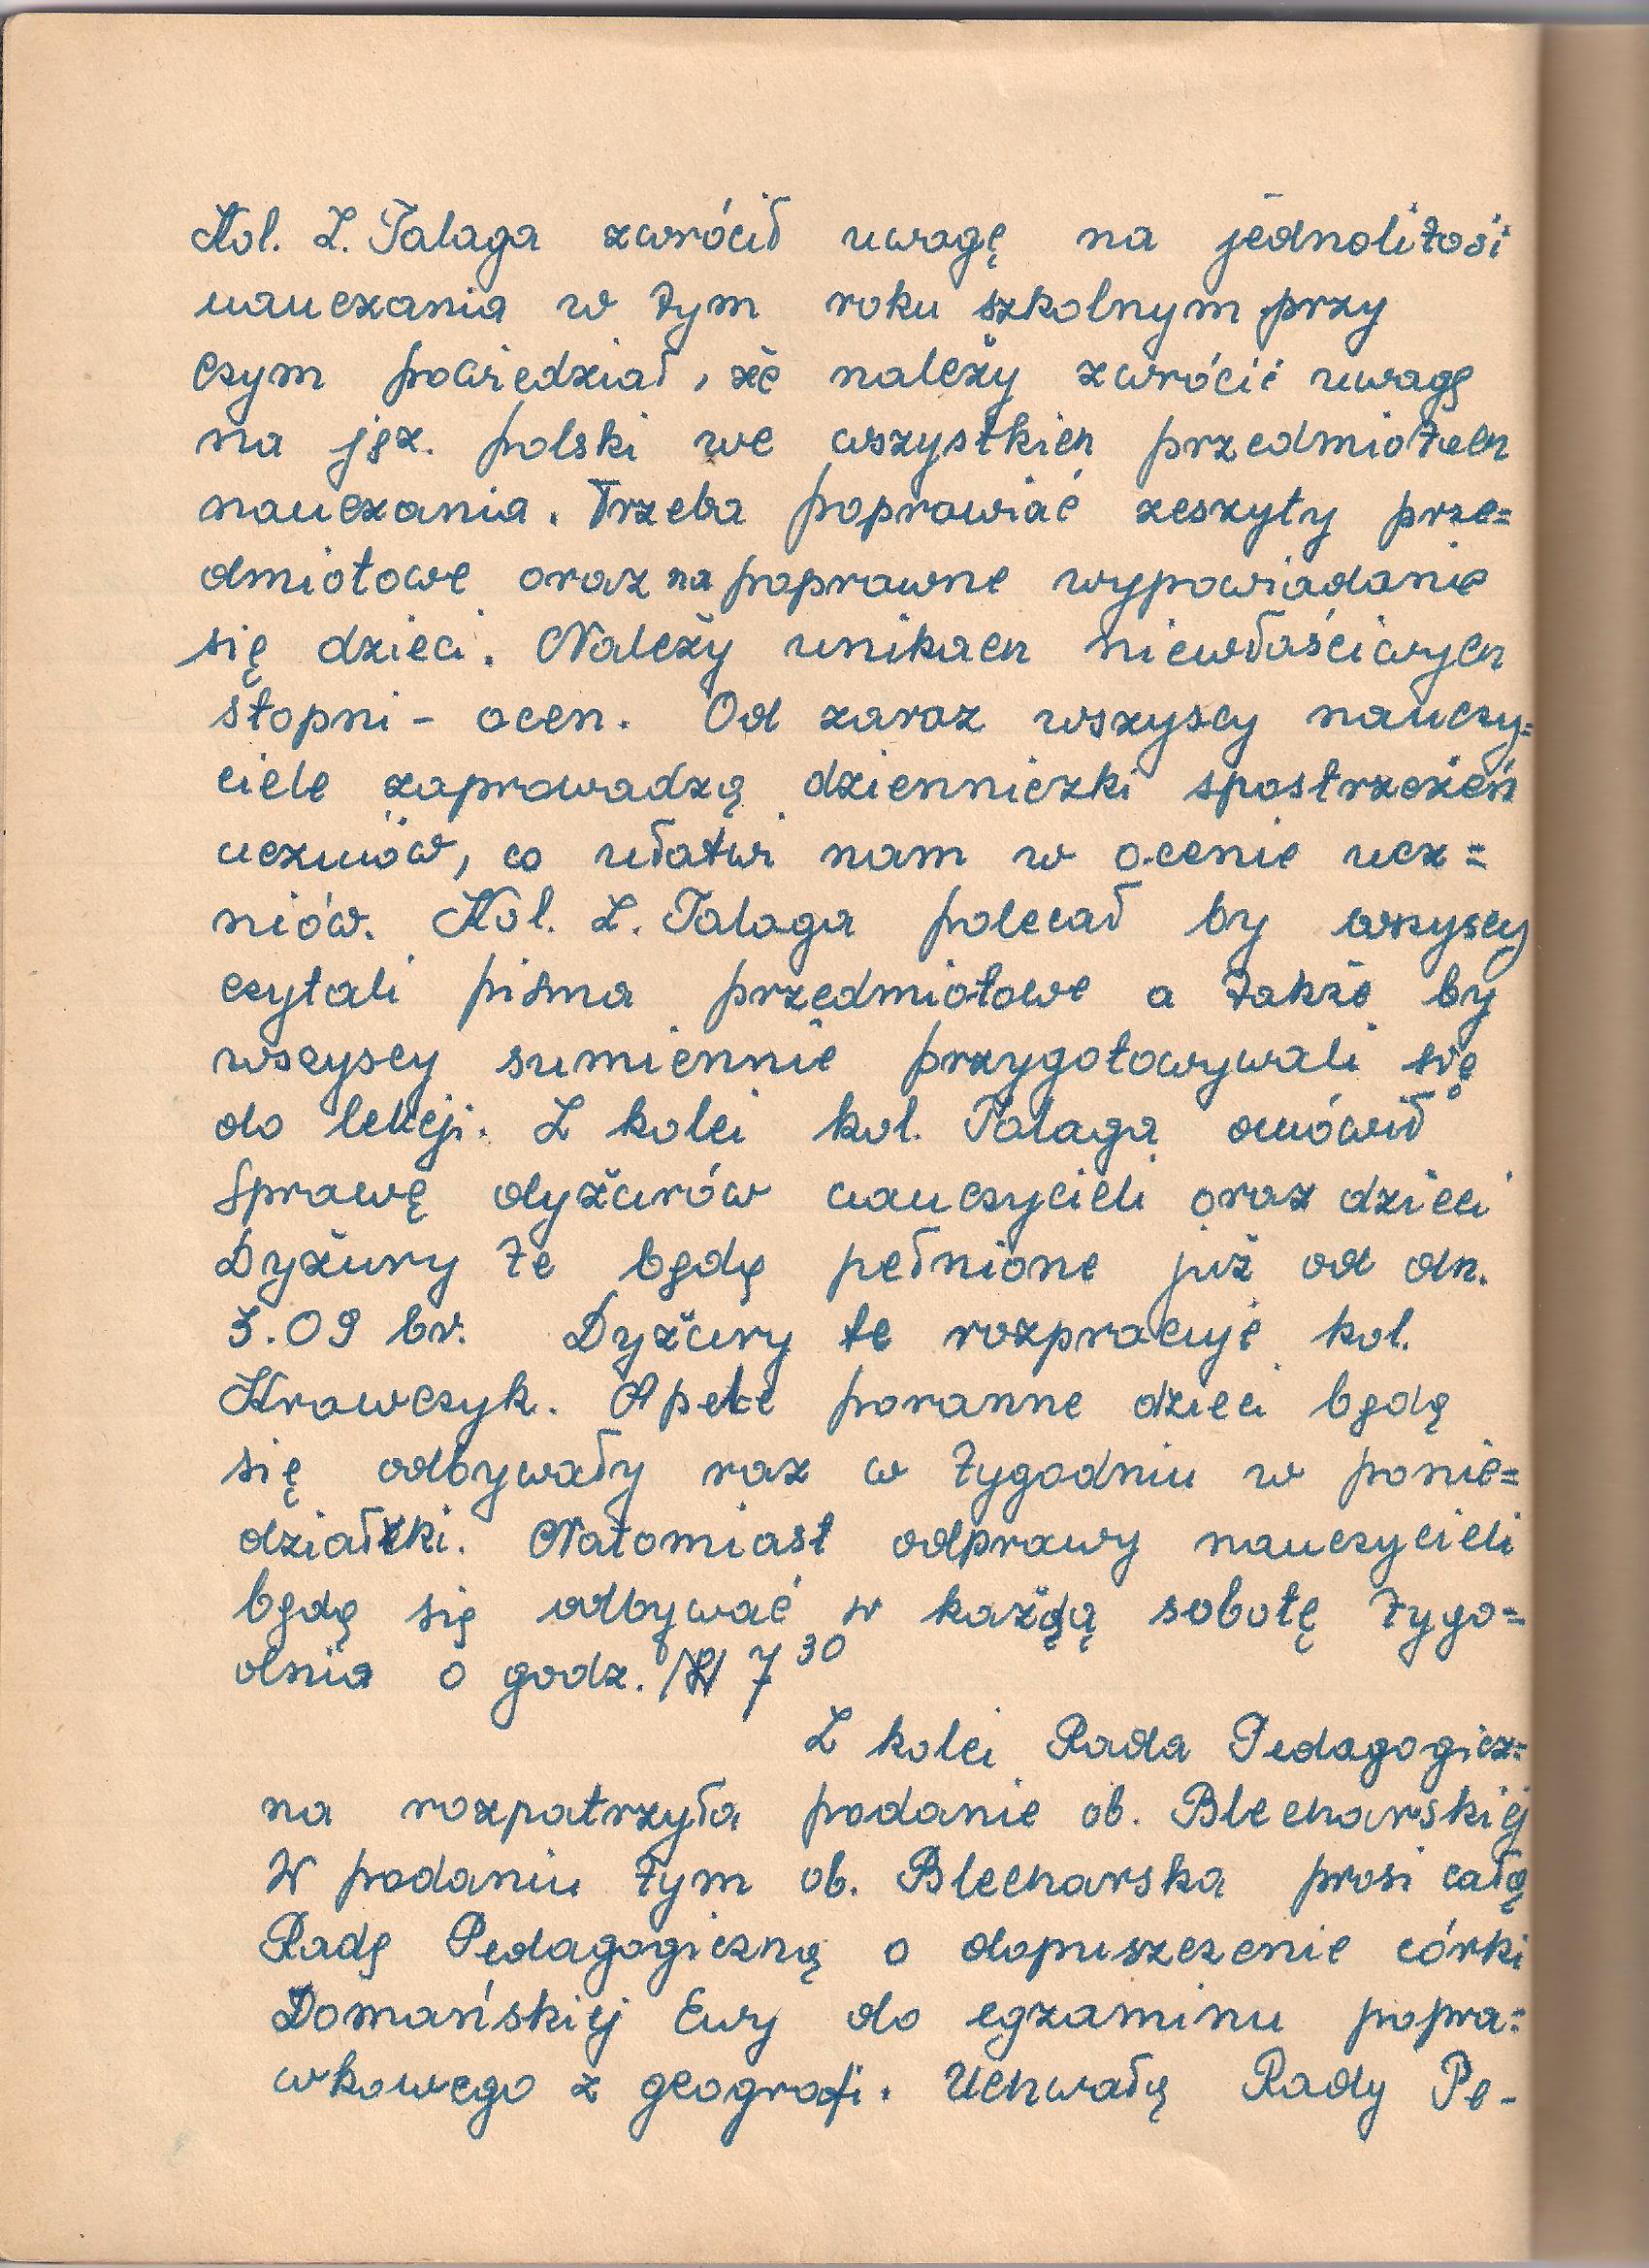 Kol. Z. Talaga zwrócił uwagę na jednolitość
nauczania w tym roku szkolnym przy
czym powiedział, że należy zwrócić uwagę
na jęz. polski we wszystkich przedmiotach
nauczania. Trzeba poprawiać zeszyty prze=
dmiotowe oraz na poprawne wypowiadanie
się dzieci. Należy unikach niewłaściwych
stopni - ocen. Od zaraz wszyscy nauczy=
ciele zaprowadzą dzienniczki spostrzeżeń
uczniów, co ułatwi nam w ocenie ucz=
niów. Kol. Z. Talaga polecał by wszyscy
czytali pisma przedmiotowe a także by
wszyscy sumiennie przygotowywali się
do lekcji. Z kolei kol. Talaga omówił
sprawę dyżurów nauczycieli oraz dzieci
Dyżury te będą pełnione już od dn.
3.09 br. Dyżury te rozpracuje kol.
Krawczyk. Apele poranne dzieci będą
się odbywały raz w tygodniu w ponie=
działki. Natomiast odprawy nauczycieli
będą się odbywać w każdą sobotę tygo=
dnia o godz. 7 30
Z kolei Rada Pedagogicz=
na rozpatrzyła podanie ob. Blecharskiej
W podaniu tym ob. Blecharska prosi całą
Radę Pedagogiczną o dopuszczenie córki
Domańskiej Ewy do egzaminu popra=
wkowego z geografi. Uchwałą Rady Pe-